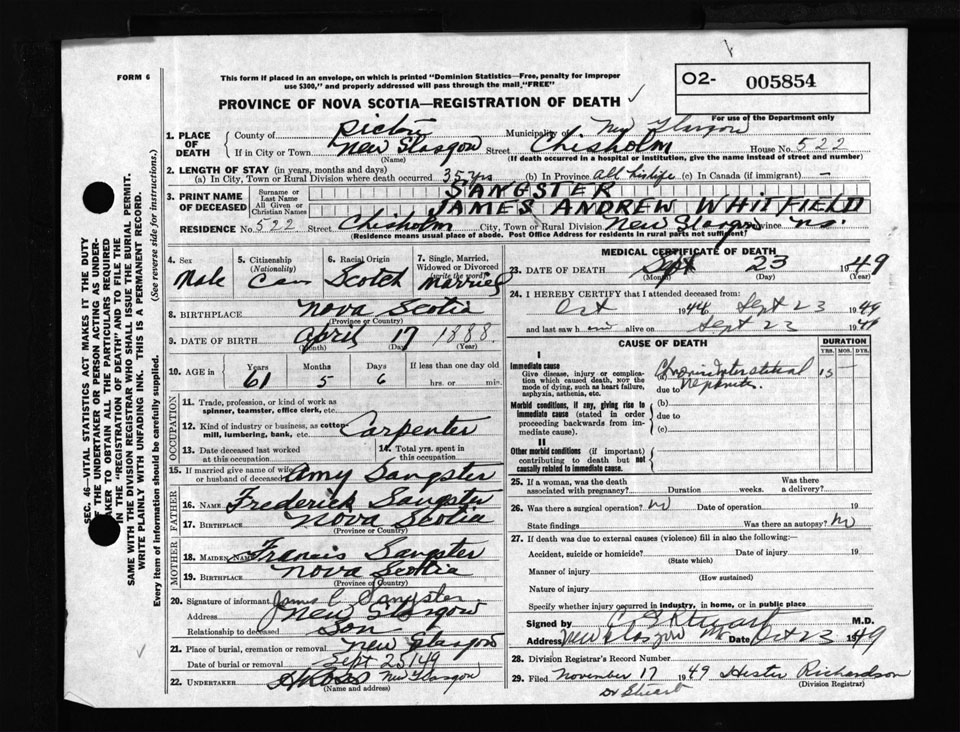 FORM 6
This form if placed in an envelope, on which is printed "Dominion Statistics—Free, penalty for improper
use $300," and properly addressed will pass through the mail "FREE"
PROVINCE OF NOVA SCOTIA—REGISTRATION OF DEATH
O2- 005854
For use of the Department only
1. PLACE OF DEATH
County of Pictou Municipality of New Glasgow
If in City or Town New Glasgow Street Chisholm House No. 522
(Name) (If death occurred in a hospital or institution, give the name instead of street and number)
2. LENGTH OF STAY (in years, months and days)
(a) In City, Town or Rural Division where death occurred 35 yrs (b) In Province All his life (c) In Canada (if immigrant) —
3. PRINT NAME OF DECEASED
Surname or Last Name SANGSTER
All Given or Christian Names JAMES ANDREW WHITFIELD
RESIDENCE No. 522 Street Chisholm City, Town or Rural Division New Glasgow Province N.S.
(Residence means usual place of abode. Post Office Address for residents in rural parts not sufficient)
4. Sex Male
5. Citizenship (Nationality) Can
6. Racial Origin Scotch
7. Single, Married, Widowed or Divorced (write the word) Married
8. BIRTHPLACE Nova Scotia
(Province or Country)
9. DATE OF BIRTH April 17 1888
(Month) (Day) (Year)
10. AGE in Years 61 Months 5 Days 6 If less than one day old hrs. or min.
OCCUPATION
11. Trade, profession, or kind of work as spinner, teamster, office clerk, etc.
12. Kind of industry or business, as cotton mill, lumbering, bank, etc. Carpenter
13. Date deceased last worked at this occupation
14. Total yrs. spent in this occupation
15. If married give name of wife or husband of deceased Amy Sangster
FATHER
16. NAME Frederick Sangster
17. BIRTHPLACE Nova Scotia
(Province or Country)
MOTHER
18. MAIDEN NAME Francis Sangster
19. BIRTHPLACE Nova Scotia
(Province or Country)
20. Signature of informant James C Sangster
Address New Glasgow
Relationship to deceased Son
21. Place of burial, cremation or removal New Glasgow
Date of burial or removal Sept 25/49
22. UNDERTAKER New Glasgow
(Name and address)
MEDICAL CERTIFICATE OF DEATH
23. DATE OF DEATH Sept 23 1949
(Month) (Day) (Year)
24. I HEREBY CERTIFY that I attended deceased from:
Oct 1944 Sept 23 1949
and last saw h im alive on Sept 23 1949
CAUSE OF DEATH
DURATION
YRS. MOS. DYS.
I
Immediate cause
Give disease, injury or complication which caused death, not the mode of dying, such as heart failure, asphyxia, asthenia, etc.
(a) Chronic Interstitial 15 —
due to Nephritis
Morbid conditions, if any, giving rise to immediate cause (stated in order proceeding backwards from immediate cause).
(b)
due to
(c)
II
Other morbid conditions (if important) contributing to death but not causally related to immediate cause.
25. If a woman, was the death associated with pregnancy? Duration weeks. Was there a delivery?
26. Was there a surgical operation? No Date of operation 19
State findings Was there an autopsy? No
27. If death was due to external causes (violence) fill in also the following:
Accident, suicide or homicide? Date of injury 19
(State which)
Manner of injury
(How sustained)
Nature of injury
Specify whether injury occurred in industry, in home, or in public place
Signed by Stewart M.D.
Address New Glasgow NS Date Oct 23 1949
28. Division Registrar's Record Number
29. Filed November 17 1949 Hester Richardson
(Division Registrar)
Dr Stuart
SEC. 46—VITAL STATISTICS ACT MAKES IT THE DUTY
OF THE UNDERTAKER OR PERSON ACTING AS UNDER-
TAKER TO OBTAIN ALL THE PARTICULARS REQUIRED
IN THE "REGISTRATION OF DEATH" AND TO FILE THE
SAME WITH THE DIVISION REGISTRAR WHO SHALL ISSUE THE BURIAL PERMIT.
WRITE PLAINLY WITH UNFADING INK. THIS IS A PERMANENT RECORD.
Every item of information should be carefully supplied. (See reverse side for instructions.)